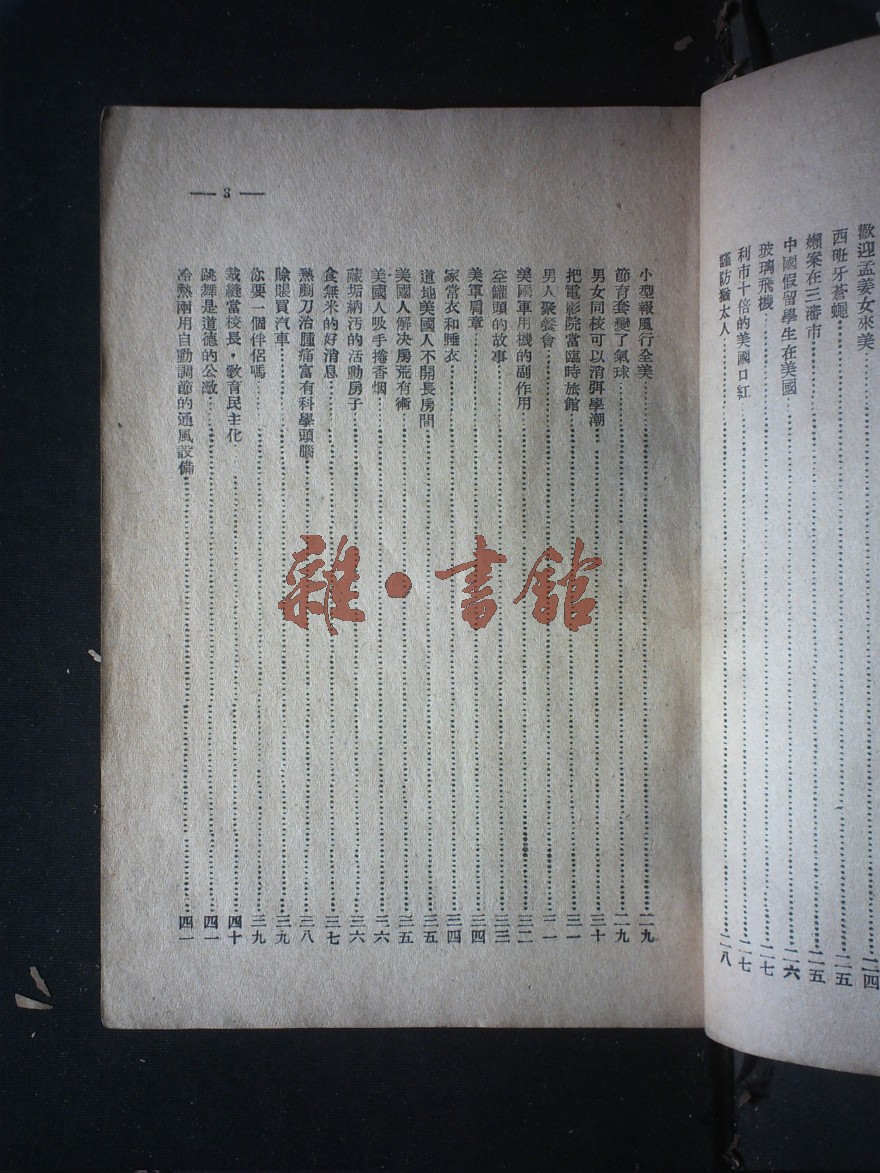 歡迎孟姜女來美二四
西班牙蒼蠅二五
嬾案在三藩市二五
中國假留學生在美國二六
玻璃飛機二七
利市十倍的美國口紅二七
謹防猶太人二八
— 3 —
小型報風行全美二九
節育套變了氣球二九
男女同校可以消弭學潮三十
把電影院當臨時旅館三一
男人聚餐會
美國軍用機的副作用三二
空罐頭的故事三三
美軍肩章三四
家常衣和睡衣三四
道地美國人不開長房間三五
美國人解决房荒有術三五
美國人吸手捲香烟三六
藏垢納汚的活動房子三六
食無米的好消息三七
熱剃刀治腫痛富有科學頭腦三八
賒賬買汽車三九
你要一個伴侶嗎三九
裁縫當校長·敎育民主化四十
跳舞是道德的公敵四一
冷熱兩用自動調節的通風設備四一
雜·書館